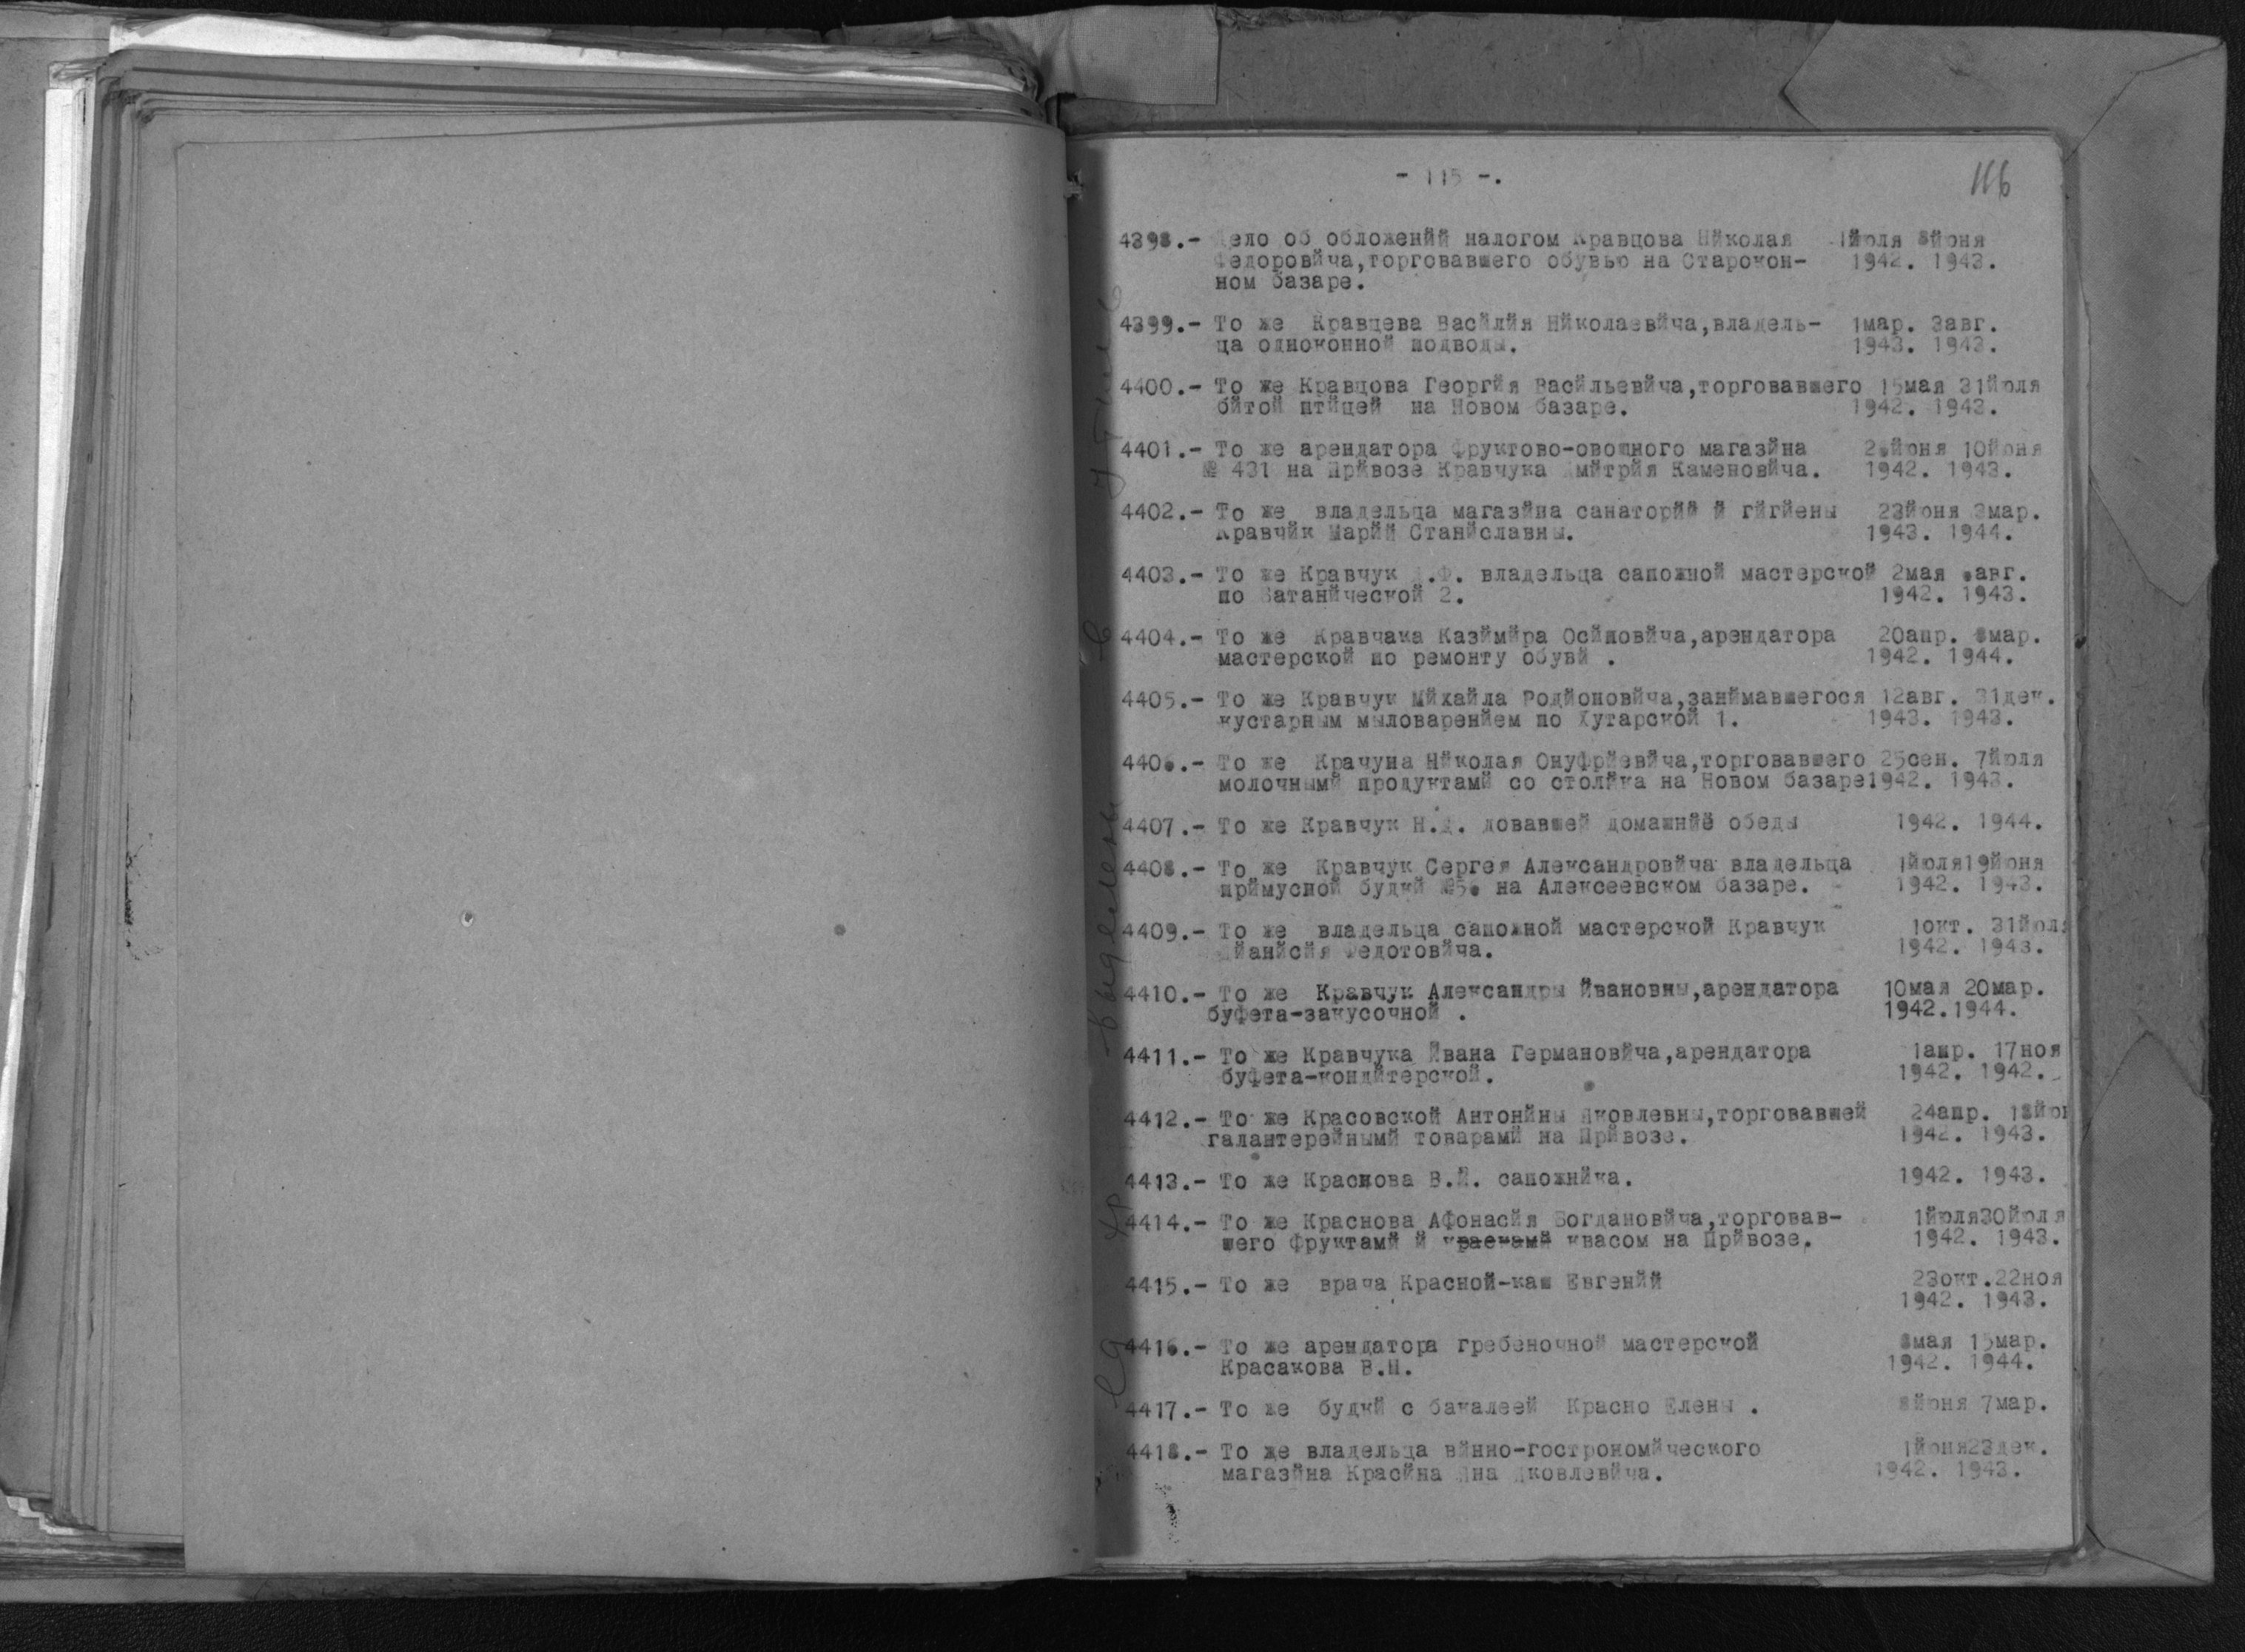 - 115 -.
116
4398.- Дело об обложенйй налогом Кравцова Нйколая 1йюля 8йюня
Федоровйча,торговавшего обувью на Старокон- 1942. 1943.
ном базаре.
4399.- То же Кравцева Васйлйя Нйколаевйча,владель- 1мар. 3авг.
ца одноконной подводы. 1943. 1943.
4400.- То же Кравцова Георгйя Васйльевйча,торговавшего 15мая 31йюля
бйтой птйцей на Новом базаре. 1942. 1943.
4401.- То же арендатора фруктово-овощного магазйна 26йюня 10йюня
№ 431 на Прйвозе Кравчука Дмйтрйя Каменовйча. 1942. 1943.
4402.- То же владельца магазйна санаторйй й гйгйены 23йюня 3мар.
Кравчйк Марйй Станйславны. 1943. 1944.
4403.- То же Кравчук .Ф. владельца сапожной мастерской 2мая авг.
по Батанйческой 2. 1942. 1943.
4404.- То же Кравчака Казймйра Осйповйча,арендатора 20апр. 8мар.
мастерской по ремонту обувй . 1942. 1944.
4405.- То же Кравчук Мйхайла Родйоновйча,занймавшегося 12авг. 31дек.
кустарным мыловаренйем по Хутарской 1. 1943. 1943.
4406.- То же Крачуна Нйколая Онуфрйевйча,торговавшего 25сен. 7йюля
молочнымй продуктамй со столйка на Новом базаре1942. 1943.
4407.- То же Кравчук Н.Д. довавшей домашнйё обеды 1942. 1944.
4408.- То же Кравчук Сергея Александровйча владельца 1йюля19йюня
прймусной будкй №56 на Алексеевском базаре. 1942. 1943.
4409.- То же владельца сапожной мастерской Кравчук 1окт. 31йюля
Дйанйсйя Федотовйча. 1942. 1943.
4410.- То же Кравчук Александры Йвановны,арендатора 10мая 20мар.
буфета-закусочной . 1942.1944.
4411.- То же Кравчука Йвана Германовйча,арендатора 1апр. 17ноя
буфета-кондйтерской. 1942. 1942.
4412.- То же Красовской Антонйны Яковлевны,торговавшей 24апр. 18йюн
галантерейнымй товарамй на Прйвозе. 1942. 1943.
4413.- То же Краснова В.Й. сапожнйка. 1942. 1943.
4414.- То же Краснова Афонасйя Богдановйча,торговав- 1йюля30йюля
шего фруктамй й краскамй квасом на Прйвозе. 1942. 1943.
4415.- То же врача Красной-каш Евгенйй 23окт.22ноя
1942. 1943.
4416.- То же арендатора гребеночной мастерской 8мая 15мар.
Красакова В.Н. 1942. 1944.
4417.- То же будкй с бакалеей Красно Елены . 8йюня 7мар.
4418.- То же владельца вйнно-гострономйческого 1йюня23дек.
магазйна Красйна Яна Яковлевйча. 1942. 1943.